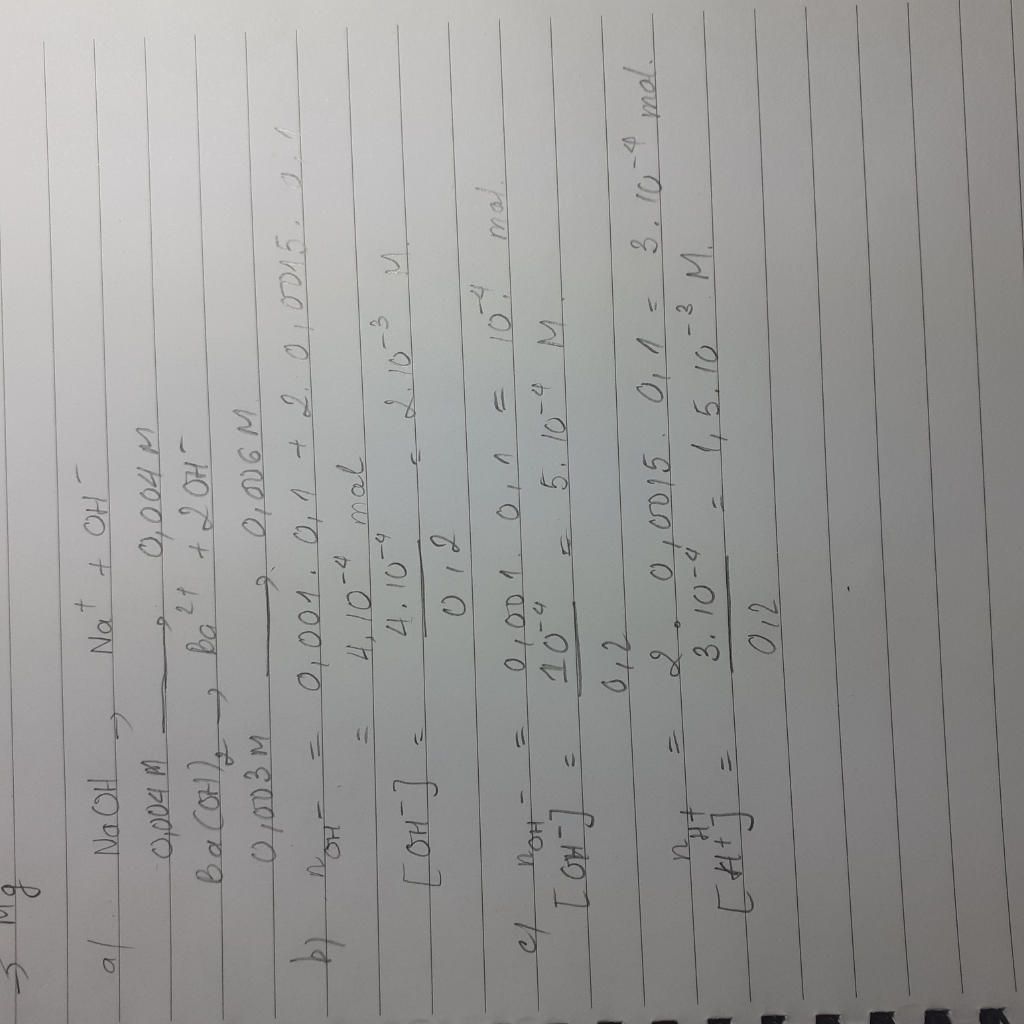 → Mg
a/ NaOH → Na⁺ + OH⁻
0,004M → 0,004M
Ba(OH)₂ → Ba²⁺ + 2OH⁻
0,003M → 0,006M
b) n OH⁻ = 0,001 . 0,1 + 2 . 0,0015 . 0,1
= 4,10⁻⁴ mol
[OH⁻] = 4.10⁻⁴ / 0,2 = 2.10⁻³ M
c/ n OH⁻ = 0,001 . 0,1 = 10⁻⁴ mol.
[OH⁻] = 10⁻⁴ / 0,2 = 5.10⁻⁴ M
n H⁺ = 2 . 0,0015 . 0,1 = 3.10⁻⁴ mol.
[H⁺] = 3.10⁻⁴ / 0,2 = 1,5.10⁻³ M.